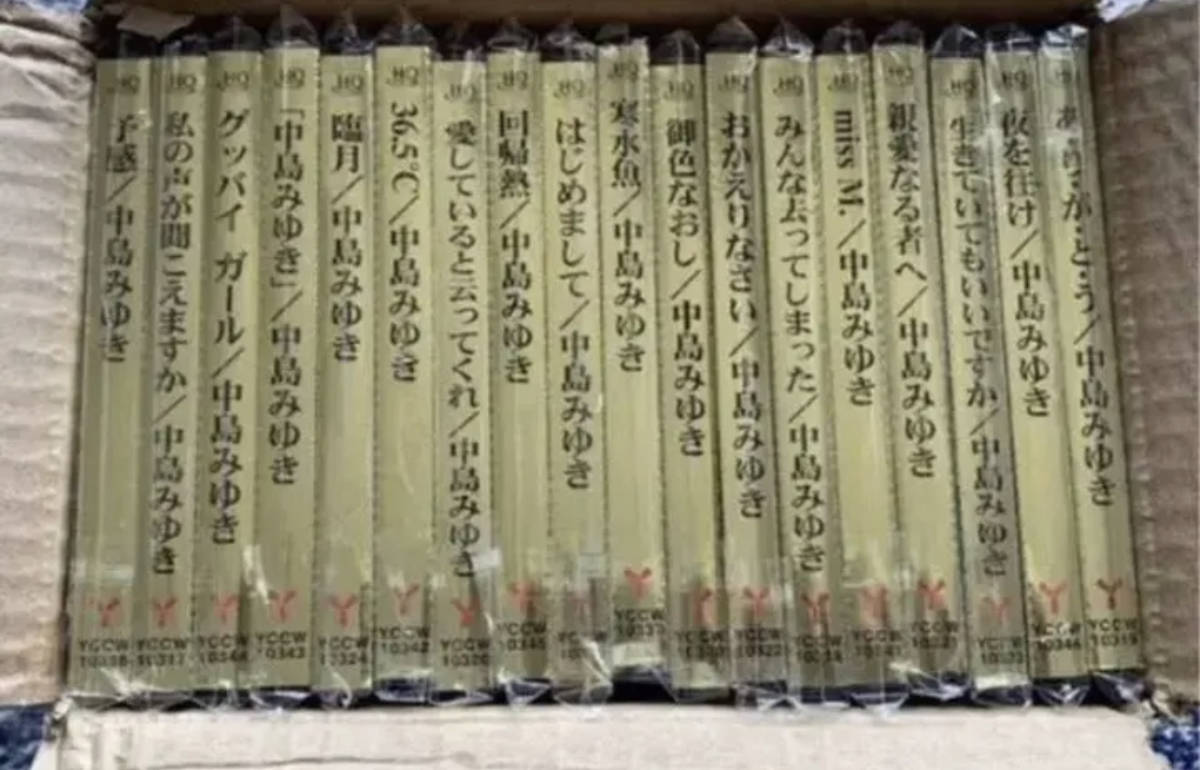 HQ
予感/中島みゆき
YCCW
HQ
私の声が聞こえますか/中島みゆき
YCCW
10317
HQ
グッバイ ガール/中島みゆき
YCCW
HQ
「中島みゆき」/中島みゆき
YCCW
10343
HQ
臨月/中島みゆき
YCCW
10324
HQ
36.5℃/中島みゆき
YCCW
10342
HQ
愛していると云ってくれ/中島みゆき
YCCW
10320
HQ
回帰熱/中島みゆき
YCCW
10345
HQ
はじめまして/中島みゆき
HQ
寒水魚/中島みゆき
YCCW
HQ
御色なおし/中島みゆき
YCCW
HQ
おかえりなさい/中島みゆき
YCCW
HQ
みんな去ってしまった/中島みゆき
YCCW
HQ
miss M./中島みゆき
YCCW
HQ
親愛なる者へ/中島みゆき
YCCW
HQ
生きていてもいいですか/中島みゆき
YCCW
HQ
夜を往け/中島みゆき
YCCW
10346
HQ
あ・り・が・と・う/中島みゆき
YCCW
10319